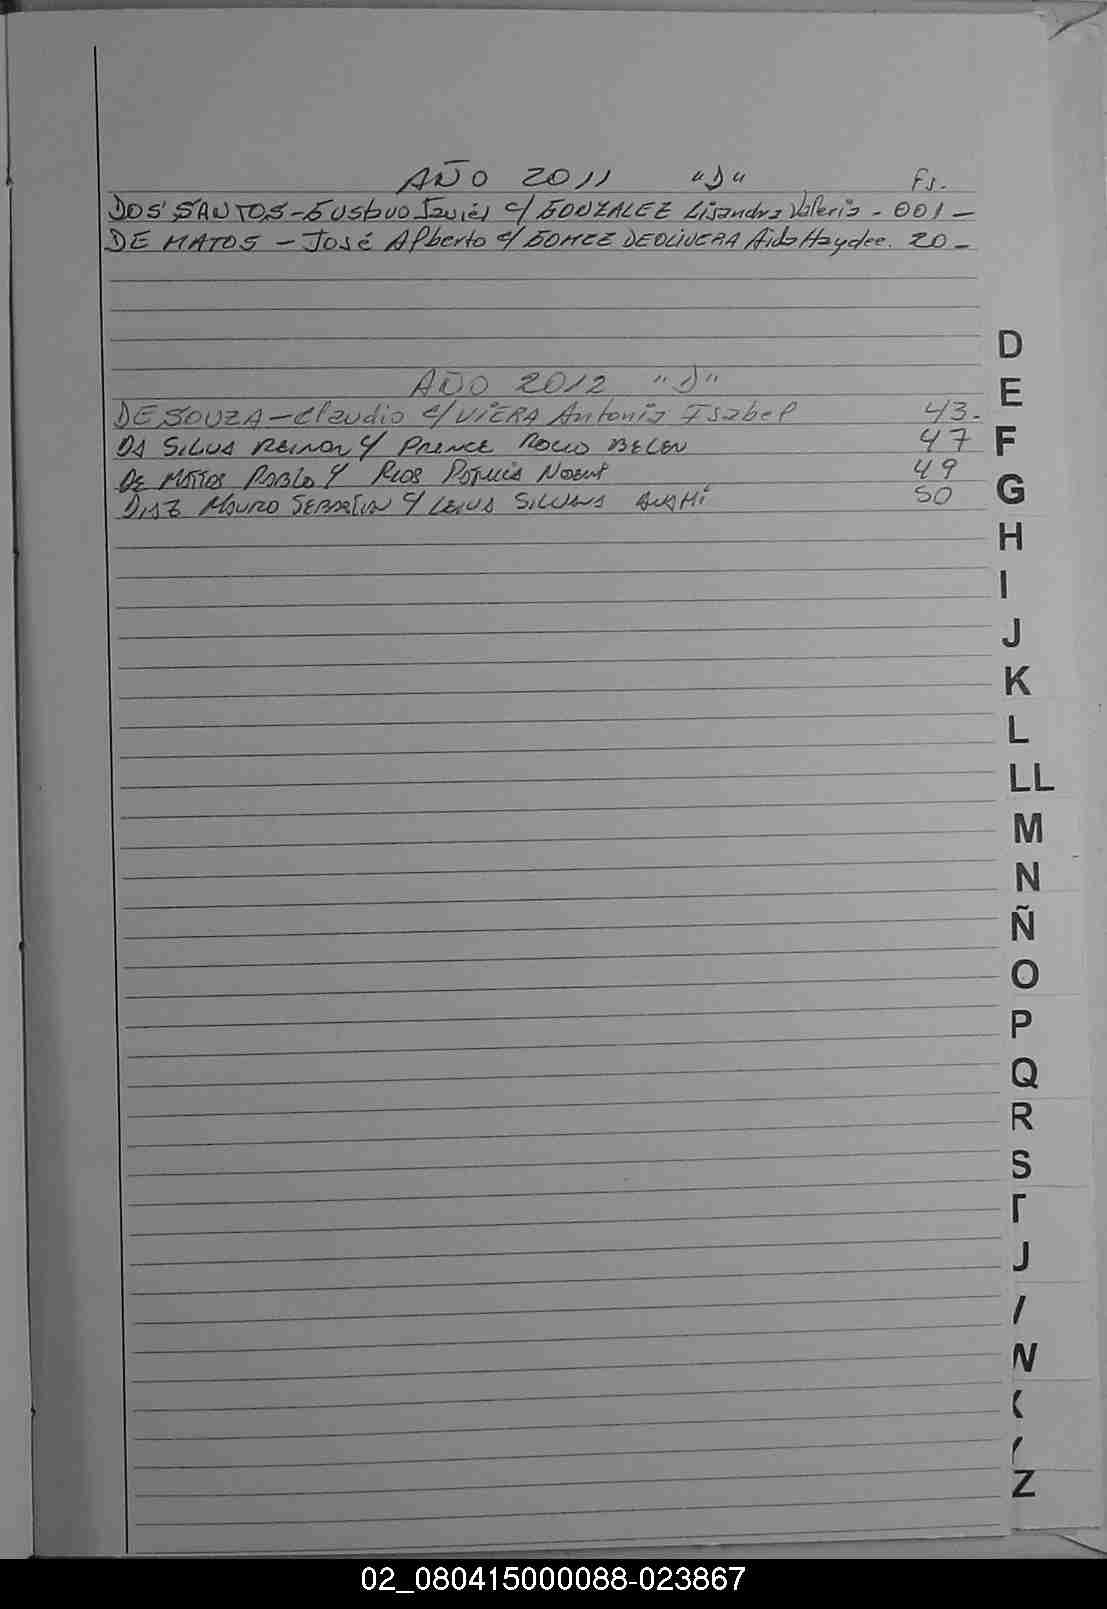 AÑO 2011 "D" Fs.
DOS SANTOS - Gustavo Javier c/ GONZALEZ Lisandra Valeria - 001 -
DE MATOS - José Alberto c/ GOMEZ DE OLIVERA Aida Haydee. 20 -
AÑO 2012 "D"
DE SOUZA - Claudio c/ VIERA Antonia Isabel 43.
DA SILVA c/ PRENCE ROCIO BELEN 47
DE MATTOS PABLO c/ RIOS NOEMI 49
DIAZ MAURO SEBASTIAN c/ SILVANA ANAHÍ 50
D
E
F
G
H
I
J
K
L
LL
M
N
Ñ
O
P
Q
R
S
Z
02_080415000088-023867